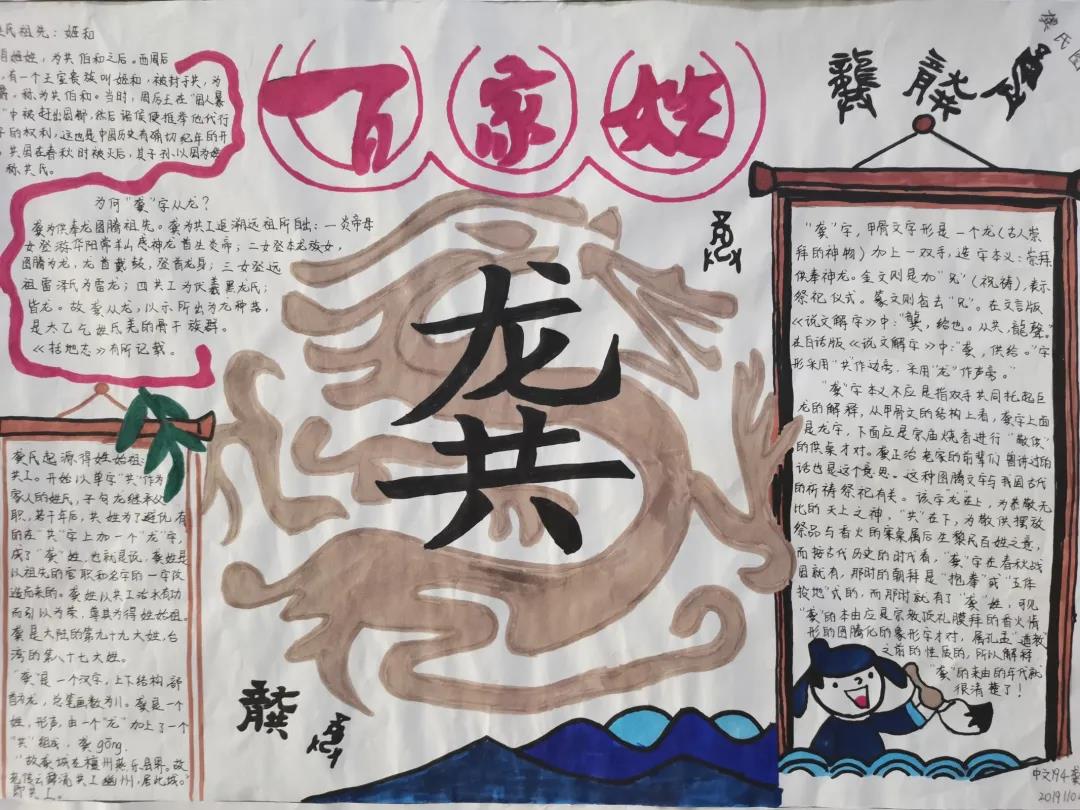 氏祖先：姬和
姬姓，为共伯和之后。西周后
，有一个王室贵族叫姬和，被封于共，为
爵，称为共伯和。当时，周厉王在“国人暴
”中被赶出国都，然后诸侯便推举他代行
子的权利，这也是中国历史有确切纪年的开
。共国在春秋时被灭后，其子孙以国为姓
，称共氏。
为何“龚”字从龙？
龚为供奉龙图腾祖先。龚为共工追溯远祖所自出：一炎帝母
女登游华阳常羊山感神龙首生炎帝；二女登本龙族女，
图腾为龙，龙首戴鼓，登首龙身；三女登远
祖雷泽氏为雷龙；四共工为伏羲黑龙氏；
皆龙。故龚从龙，以示所出为龙种落，
是太乙乞姓氏羌的骨干族群。
《括地志》有所记载。
龚氏起源，得姓始祖：
共工。开始以单字“共”作为
家人的姓氏，子句龙继承父
职，若干年后，共姓为了避仇，有
的在“共”字上加一个“龙”字，
成了“龚”姓，也就是说，龚姓是
以祖先的官职和名字的一字改
造而来的。龚姓以共工治水有功
而引以为荣，尊其为得姓始祖。
龚是大陆的第九十九大姓，台
湾的第八十七大姓。
“龚”是一个汉字，上下结构，部
首为龙，总笔画数为11。龚是一个
姓，形声，由一个“龙”加上了一个
“共”组成，龚gōng.
“故龚城在檀州燕乐县界。故
老传云舜流共工幽州，居此城。”
即共工。
百家姓
龙
共
龔
“龚”字，甲骨文字形是一个龙（古人崇
拜的神物）加上一双手，造字本义：崇拜
供奉神龙。金文则是加“兄”（祝祷），表示
祭祀仪式。篆文则省去“兄”。在文言版
《说文解字》中：“龔，给也。从共，龍聲。”
在白话版《说文解字》中：“龚，供给。”字
形采用“共”作边旁，采用“龙”作声旁。”
“龚”字本义不应是指双手共同托起巨
龙的解释，从甲骨文的结构上看，龚字上面
是龙字，下面应是宗庙烧香进行“敬供”
的供桌才对。龚正治老家的前辈们曾讲过的
话也是这个意思。这种图腾文字与我国古代
的祈祷祭祀有关。该字“龙”在上，为恭敬无
比的天上之神，“共”在下，为敬供摆放
祭品与香火的案桌属后生黎民百姓之意，
而按古代历史的时代看，“龚”字在春秋战
国就有，那时的朝拜是“抱拳”或“五体
投地”式的，而那时就有了“龚”姓，可见
“龚”的本由应是宗教顶礼膜拜的香火情
形的图腾化的象形字才对，属孔孟“道教”
之前的性质的，所以解释
“龚”的来由的年代就
很清楚了！
中文194龚
2019110